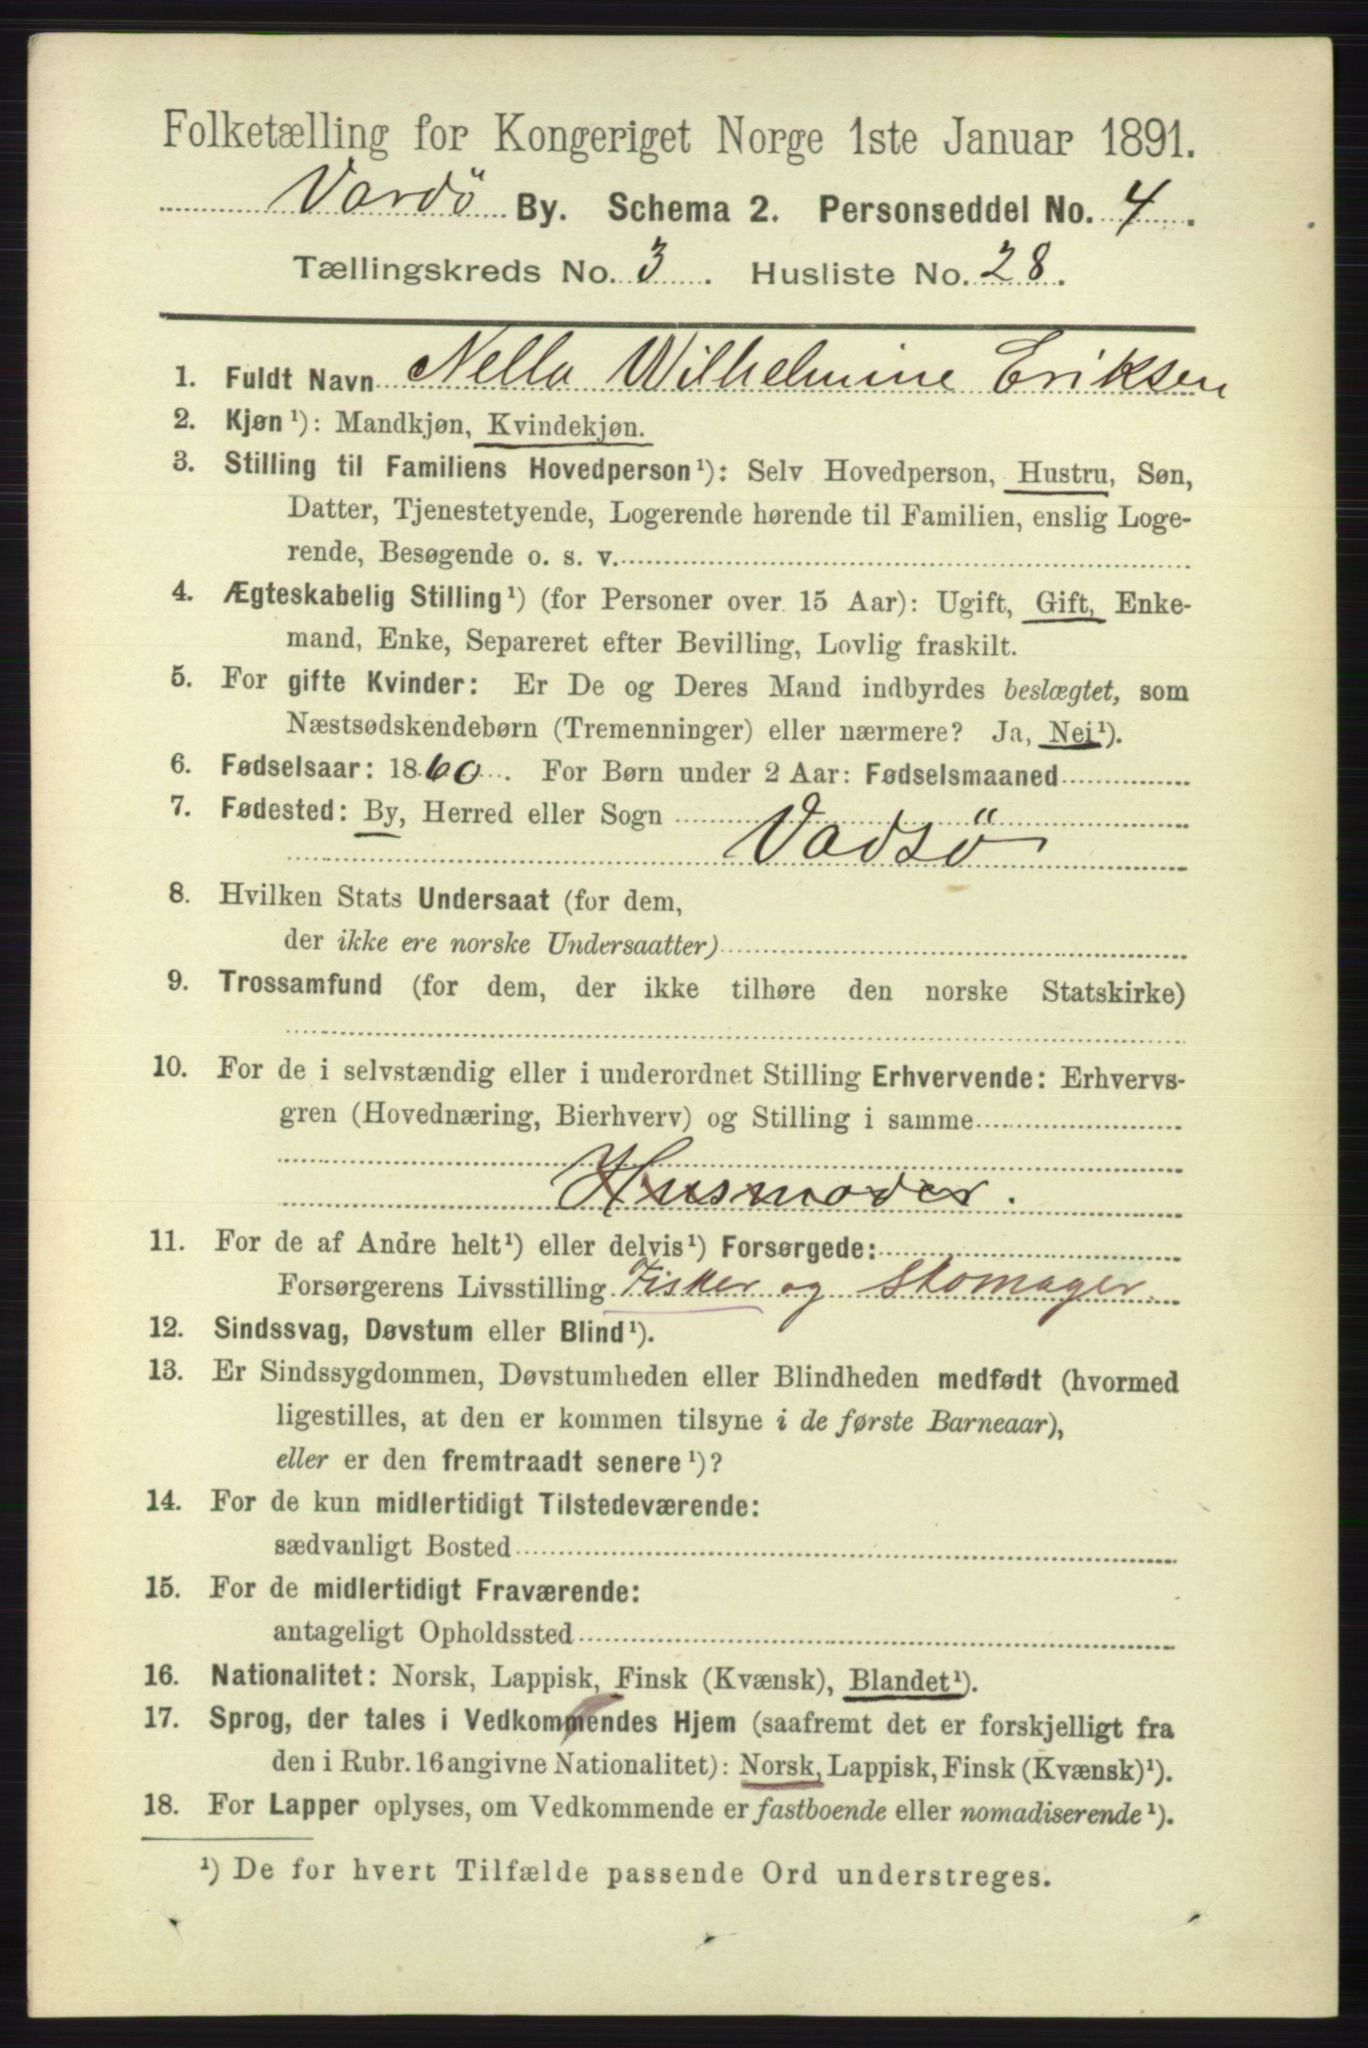 Folketælling for Kongeriget Norge 1ste Januar 1891.
Vardö By. Schema 2. Personseddel No. 4.
Tællingskreds No. 3. Husliste No. 28.
1. Fuldt Navn Nella Wilhelmine Eriksen
2. Kjøn¹): Mandkjøn, Kvindekjøn.
3. Stilling til Familiens Hovedperson¹): Selv Hovedperson, Hustru, Søn,
Datter, Tjenestetyende, Logerende hørende til Familien, enslig Loge-
rende, Besøgende o. s. v.
4. Ægteskabelig Stilling¹) (for Personer over 15 Aar): Ugift, Gift, Enke-
mand, Enke, Separeret efter Bevilling, Lovlig fraskilt.
5. For gifte Kvinder: Er De og Deres Mand indbyrdes beslægtet, som
Næstsødskendebørn (Tremenninger) eller nærmere? Ja, Nei¹).
6. Fødselsaar: 1860. For Børn under 2 Aar: Fødselsmaaned
7. Fødested: By, Herred eller Sogn
Vadsö
8. Hvilken Stats Undersaat (for dem,
der ikke ere norske Undersaatter)
9. Trossamfund (for dem, der ikke tilhøre den norske Statskirke)
10. For de i selvstændig eller i underordnet Stilling Erhvervende: Erhvervs-
gren (Hovednæring, Bierhverv) og Stilling i samme
Husmoder.
11. For de af Andre helt¹) eller delvis¹) Forsørgede:
Forsørgerens Livsstilling Fisker og Skomager.
12. Sindssvag, Døvstum eller Blind¹).
13. Er Sindssygdommen, Døvstumheden eller Blindheden medfødt (hvormed
ligestilles, at den er kommen tilsyne i de første Barneaar),
eller er den fremtraadt senere¹)?
14. For de kun midlertidigt Tilstedeværende:
sædvanligt Bosted
15. For de midlertidigt Fraværende:
antageligt Opholdssted
16. Nationalitet: Norsk, Lappisk, Finsk (Kvænsk), Blandet¹).
17. Sprog, der tales i Vedkommendes Hjem (saafremt det er forskjelligt fra
den i Rubr. 16 angivne Nationalitet): Norsk, Lappisk, Finsk (Kvænsk)¹).
18. For Lapper oplyses, om Vedkommende er fastboende eller nomadiserende¹).
¹) De for hvert Tilfælde passende Ord understreges.